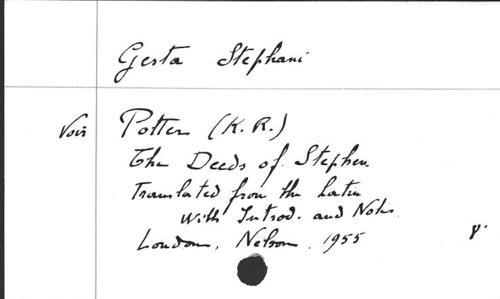 Gesta Stephani
Voir Potter (K. R.)
The Deeds of Stephen
Translated from the Latin
With Introd. and Notes
London, Nelson, 1955
8°